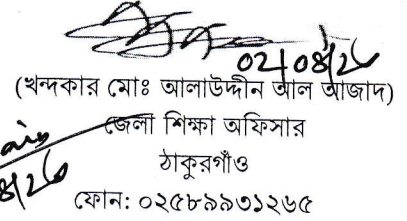 ০২/০৪/২৬
(খন্দকার মোঃ আলাউদ্দীন আল আজাদ)
জেলা শিক্ষা অফিসার
ঠাকুরগাঁও
ফোন: ০২৫৮৯৯৩১২৬৫